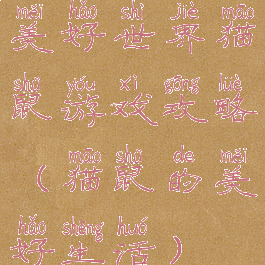 měi hǎo shì jiè māo
美好世界猫
shǔ yóu xì gōng lüè
鼠游戏攻略
māo shǔ de měi
（猫鼠的美
hǎo shēng huó
好生活）